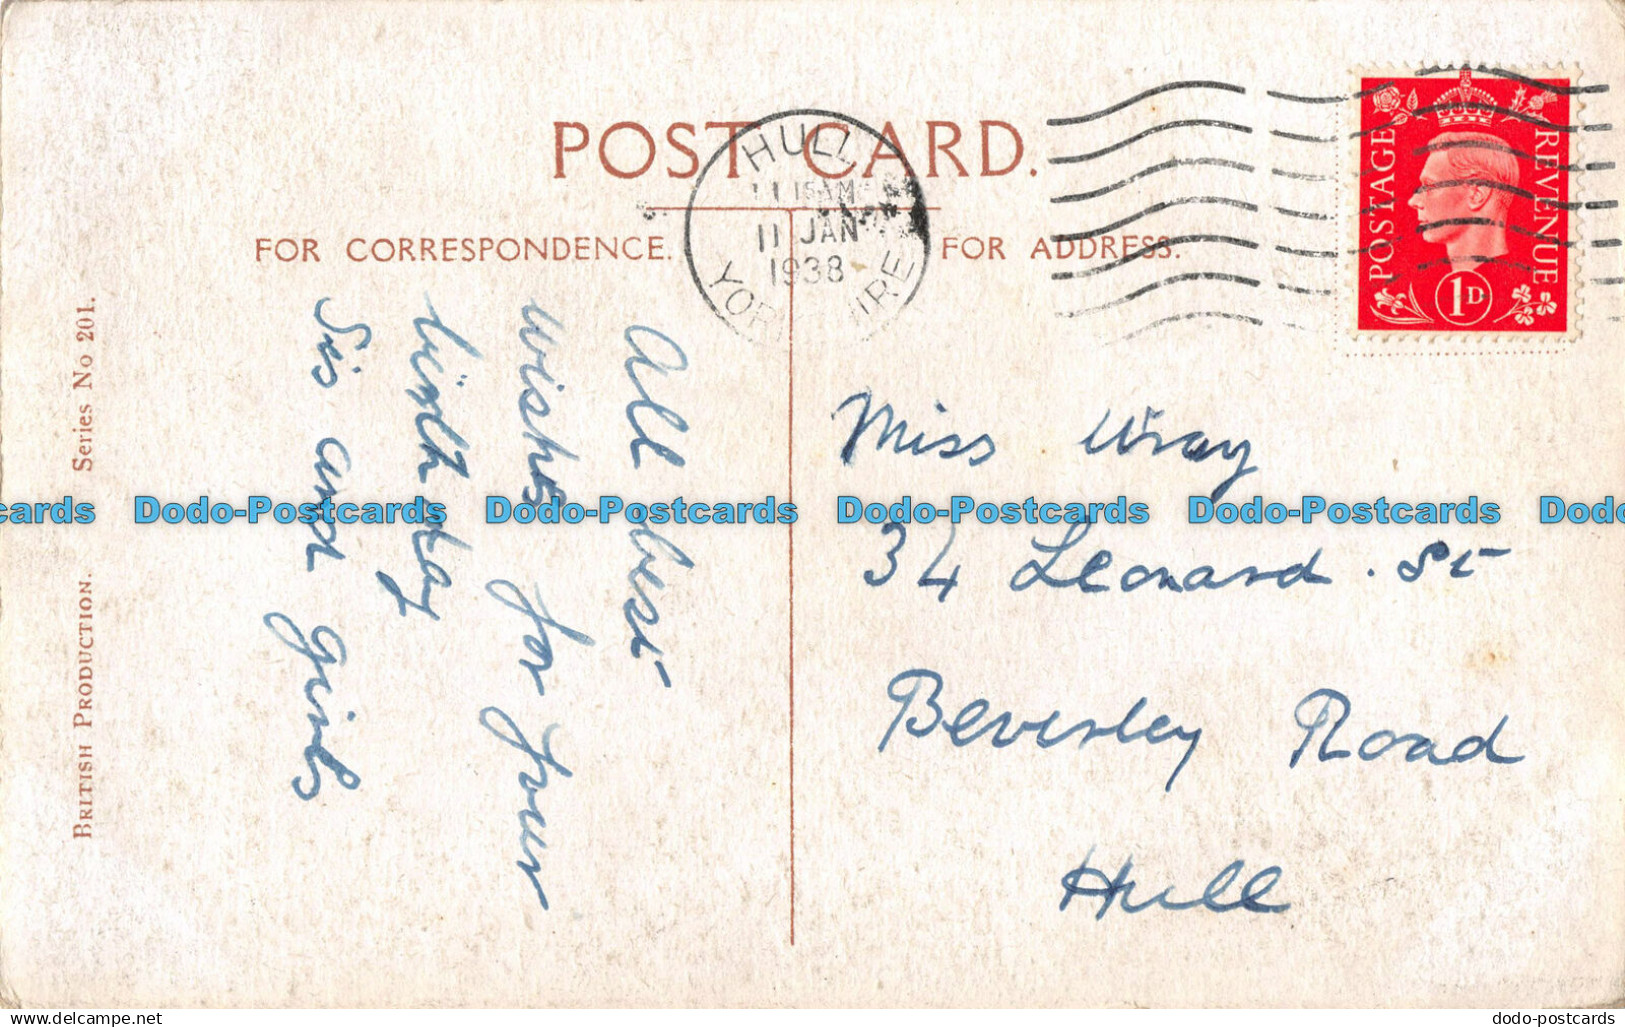 POST CARD.
HULL
11 15 AM
11 JAN
1938
YORKSHIRE
POSTAGE
REVENUE
1D
FOR CORRESPONDENCE.
FOR ADDRESS.
British Production. Series No 201.
All best
wishes for your
birthday
Sis and girls
Miss Wray
34 Leonard . St
Beverley Road
Hull
cards Dodo-Postcards Dodo-Postcards Dodo-Postcards Dodo-Postcards Dodo
Website: www.delcampe.net
dodo-postcards